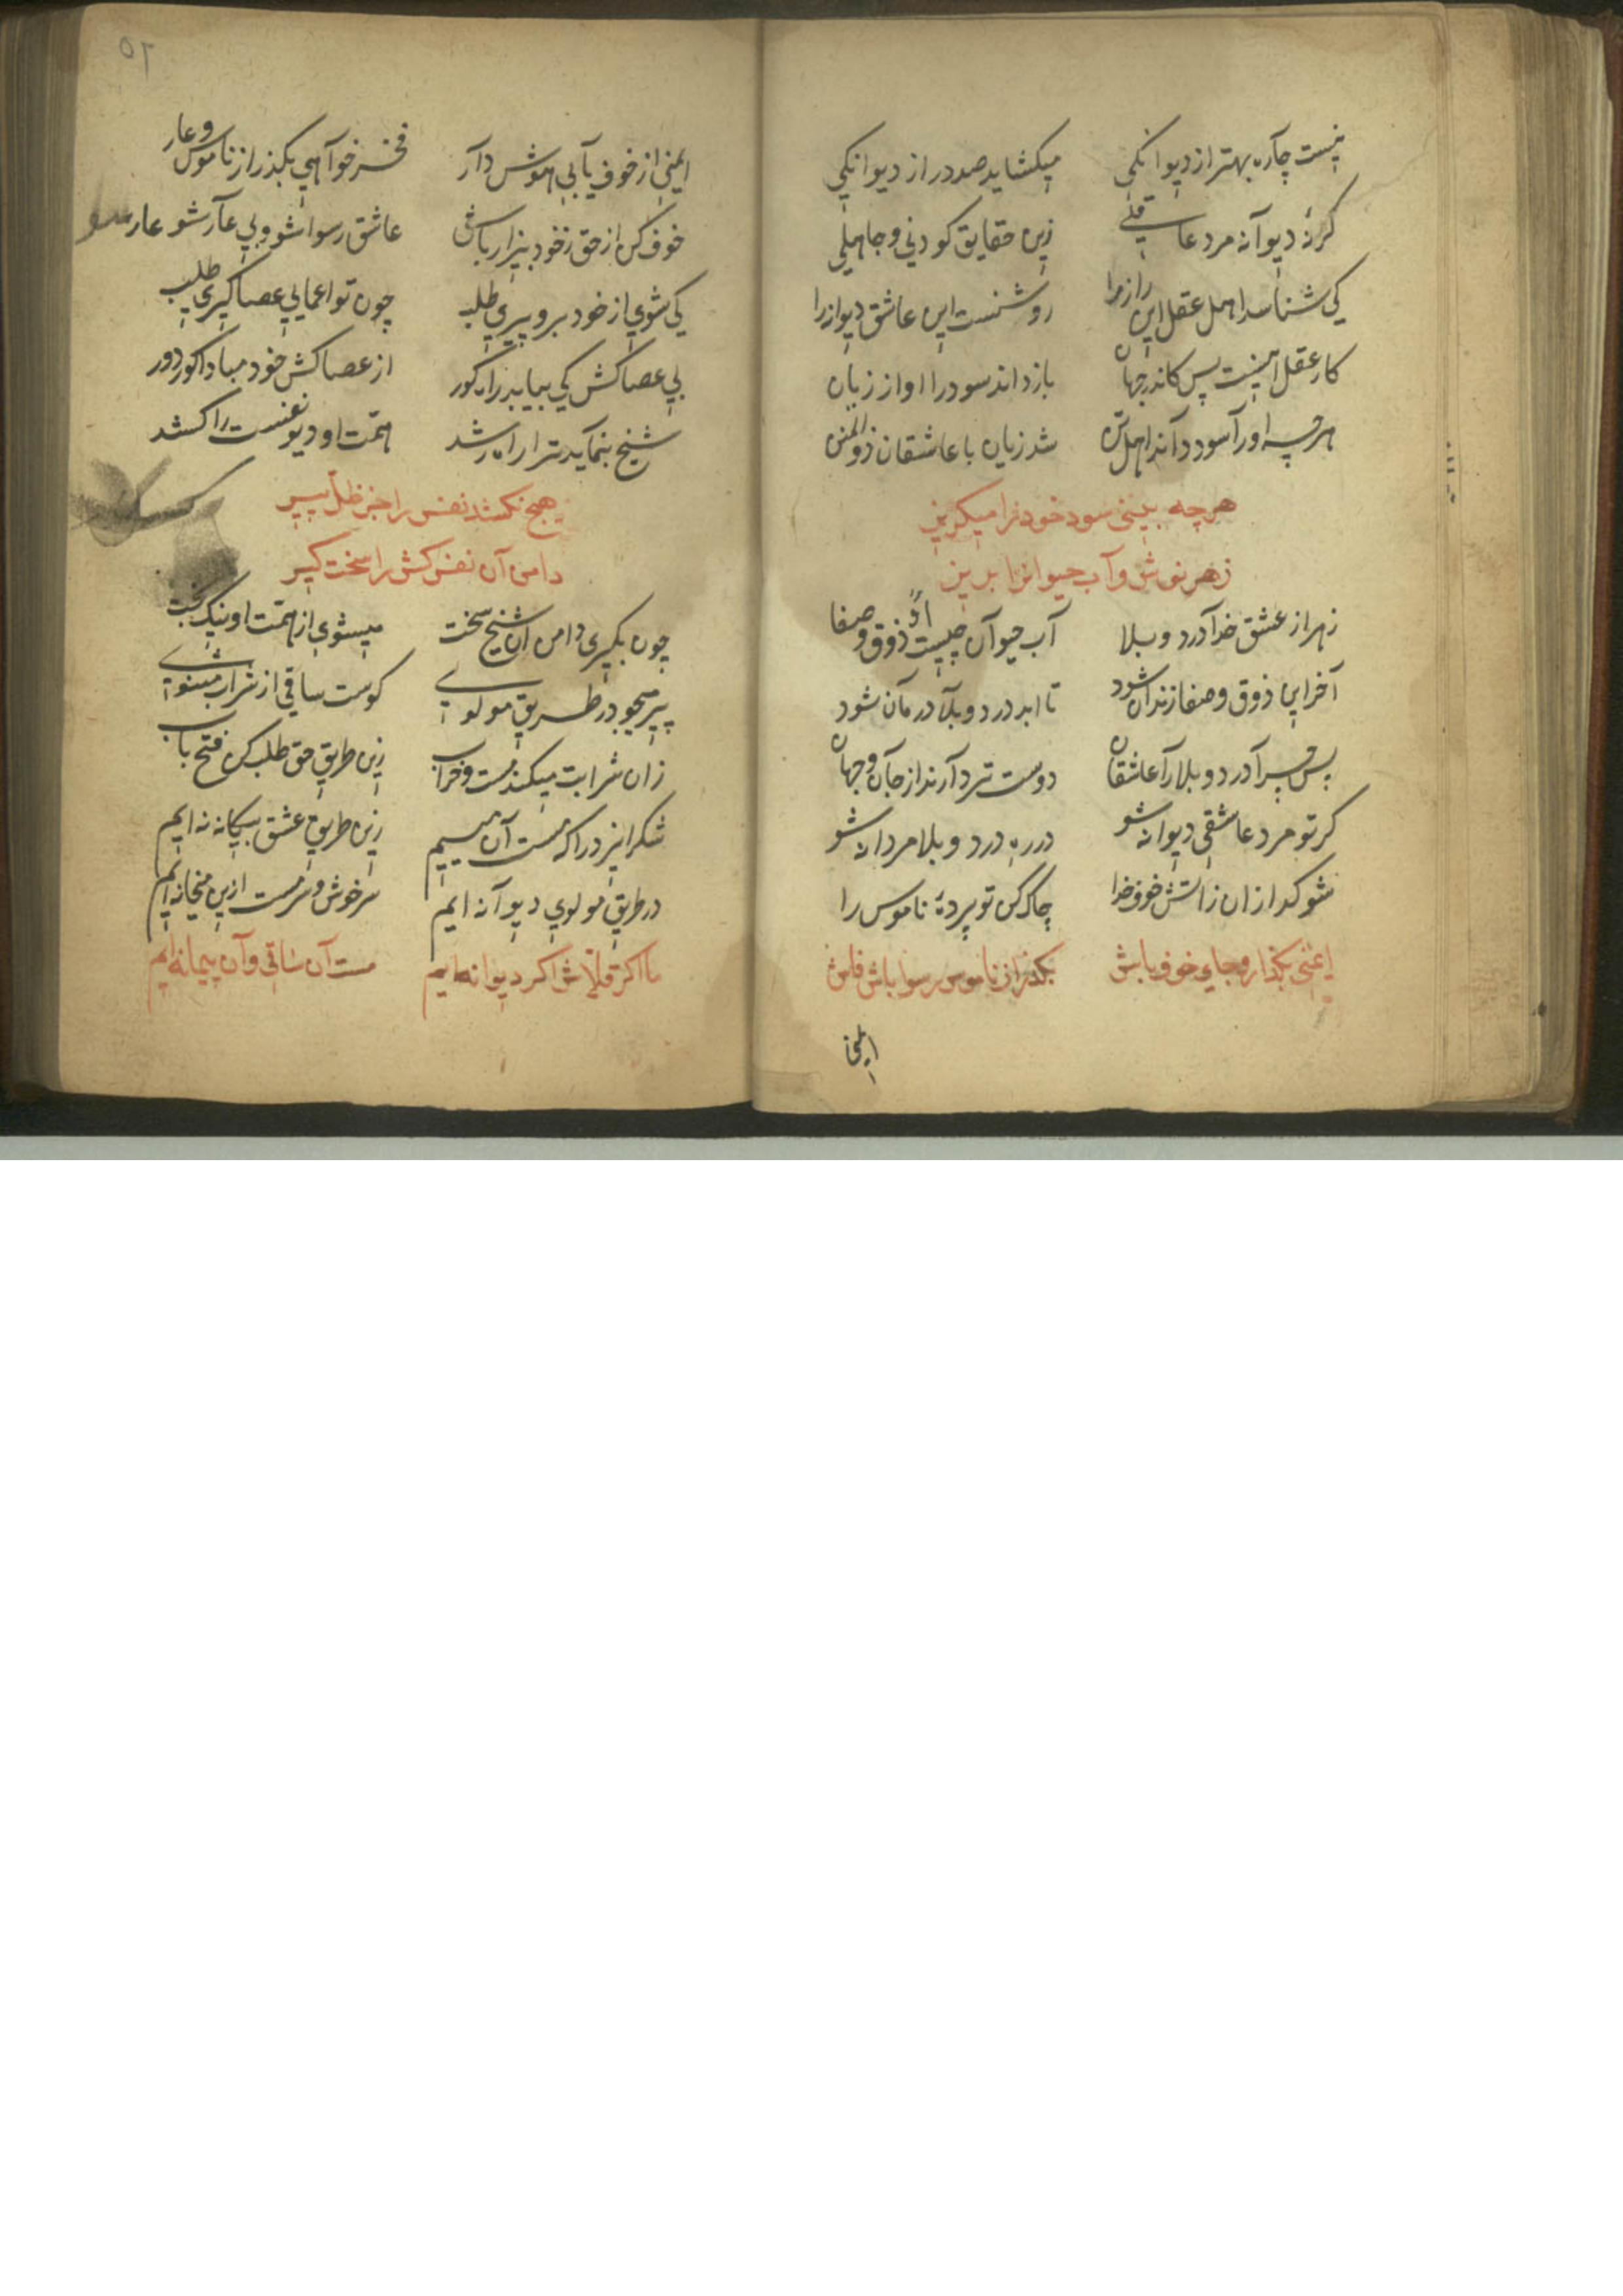 نیست چاره بهتر از دیوانکی میکشاید صد در از دیوانکی
کرنهٔ دیوانه مرد عاقلی زین حقایق کودنی و جاهلی
کی شناسد اهل عقل این راز را روشنست این عاشق دیوانه را
کار عقل اینست پس کاندر جهان بازداند سود را او از زیان
هرچه او را سود داند اهل تن شد زیان با عاشقان ذوالمنن
هرچه بینی سود خود زا میکریز
زهر نوش و آب حیوانرا بریز
زهر از عشق خدا درد و بلا آب حیوان چیست ذوق و صفا
آخر این ذوق و صفا زندان شود تا ابد درد و بلا درمان شود
پس چرا درد و بلا را عاشقان دوست تر دارند از جان و جهان
کر تو مرد عاشقی دیوانه شو در ره درد و بلا مردانه شو
شو کدازان زاتش خوف خدا چاک کن تو پردهٔ ناموس را
ایمنی بکذار و جای خوف باش بکذر از ناموس رسوا باش فاش
ایمنی
۵۲
ایمنی از خوف یابی هوش دار فخر خواهی بکذر از ناموس و عار
خوف کن از حق ز خود بیزار باش عاشق رسوا شو و بی عار شو عار
کی شوی از خود برو پیری طلب چون تو اعمایی عصاکیری طلب
بی عصاکش کی بیابد راه کور از عصاکش خود مبادا کور دور
شیخ بنماید ترا راه رشد همت او دیو نفست را کشد
هیچ نکشد نفس را جز ظل پیر
دامن آن نفس کش را سخت کیر
چون بکیری دامن آن شیخ سخت میشوی از همت او نیک بخت
پیر میجو در طریق مولوی کوست ساقی از شراب مثنوی
زان شرابت میکند مست و خراب زین طریق حق طلب کن فتح باب
شکر ایزد را که مست آن مییم زین طریق عشق بیکانه نه ایم
در طریق مولوی دیوانه ایم سرخوش و سرمست ازین میخانه ایم
ما اکر قلاش اکر دیوانه ایم مست آن ساقی و آن پیمانه ایم